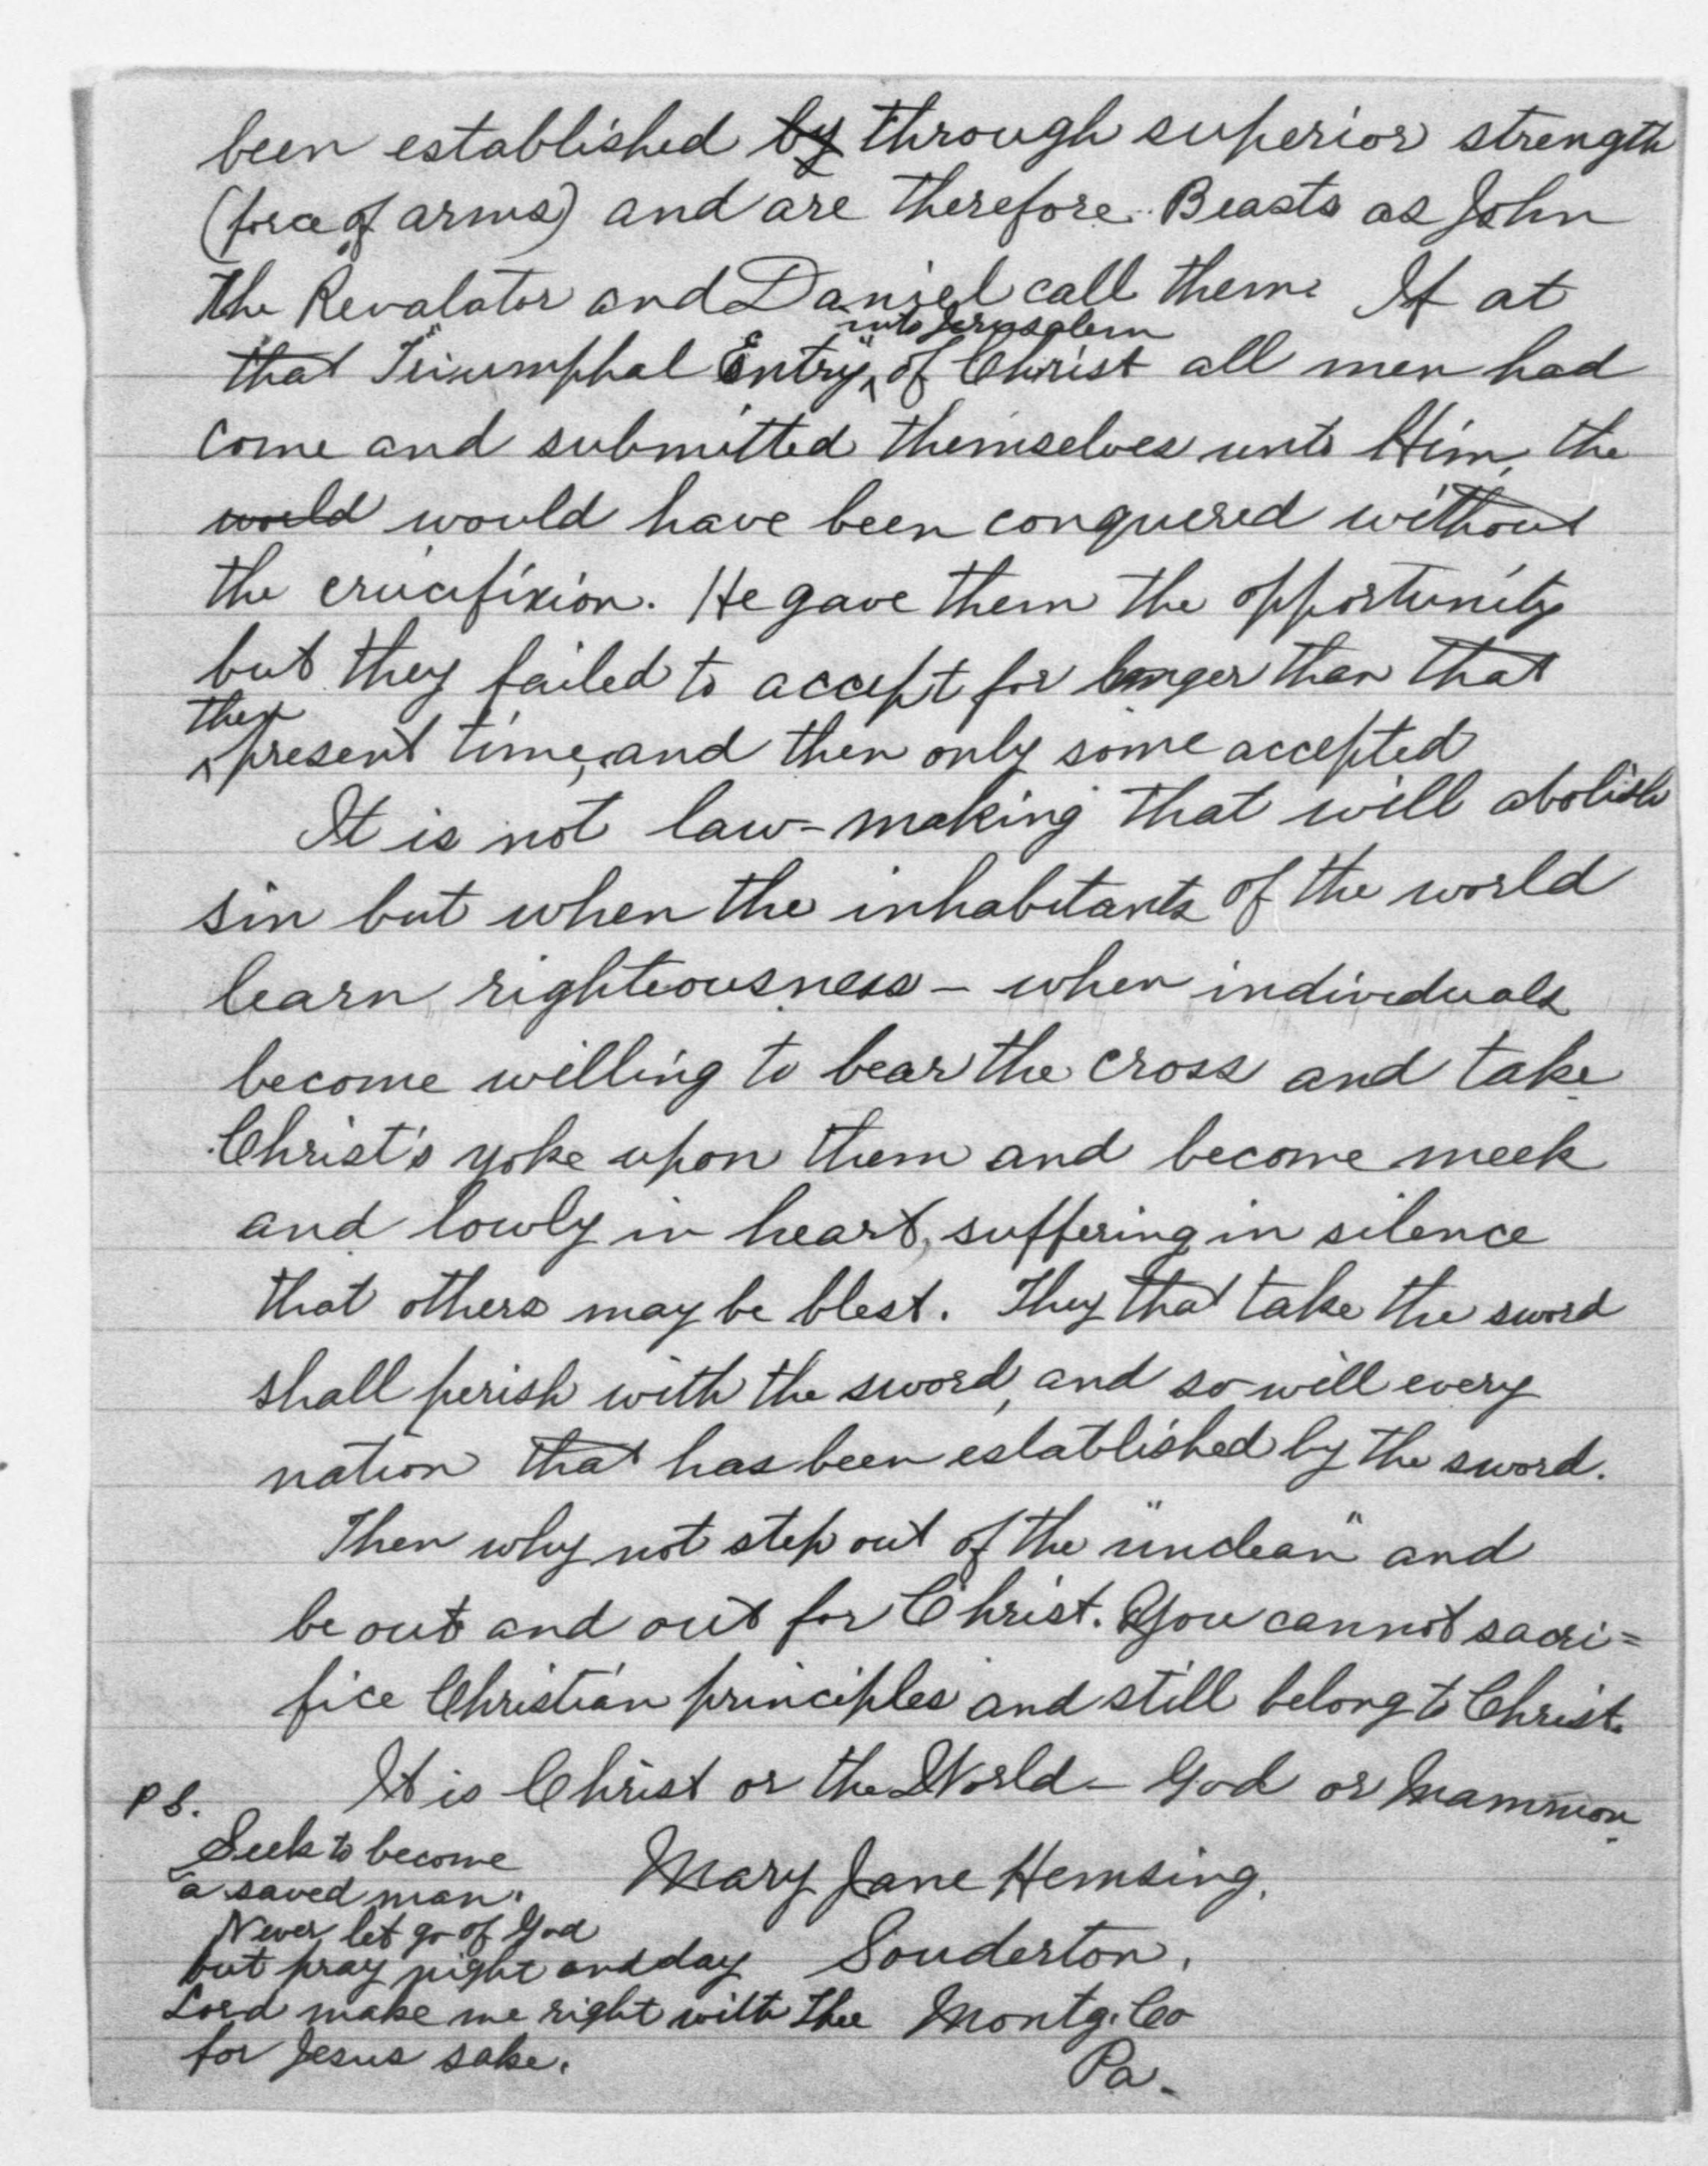 been established by through superior strength
(force of arms) and are therefore Beasts as John
the Revalator and Daniel call them. If at
into Jerusalem
that "Triumphal Entry" of Christ all men had
come and submitted themselves unto Him, the
world would have been conquered without
the crucifixion. He gave them the opportunity
but they failed to accept for longer than that
then
present time, and then only some accepted
It is not law-making that will abolish
sin but when the inhabitants of the world
learn righteousness - when individuals
become willing to bear the cross and take
Christ's yoke upon them and become meek
and lowly in heart, suffering in silence
that others may be blest. They that take the sword
shall perish with the sword, and so will every
nation that has been established by the sword.
Then why not step out of the "unclean" and
be out and out for Christ. You cannot sacri=
fice Christian principles and still belong to Christ.
It is Christ or the World - God or Mammon.
P S.
Seek to become
a saved man.
Never let go of God
but pray night and day
Lord make me right with Thee
for Jesus sake.
Mary Jane Hemsing.
Souderton,
Montg. Co
Pa.